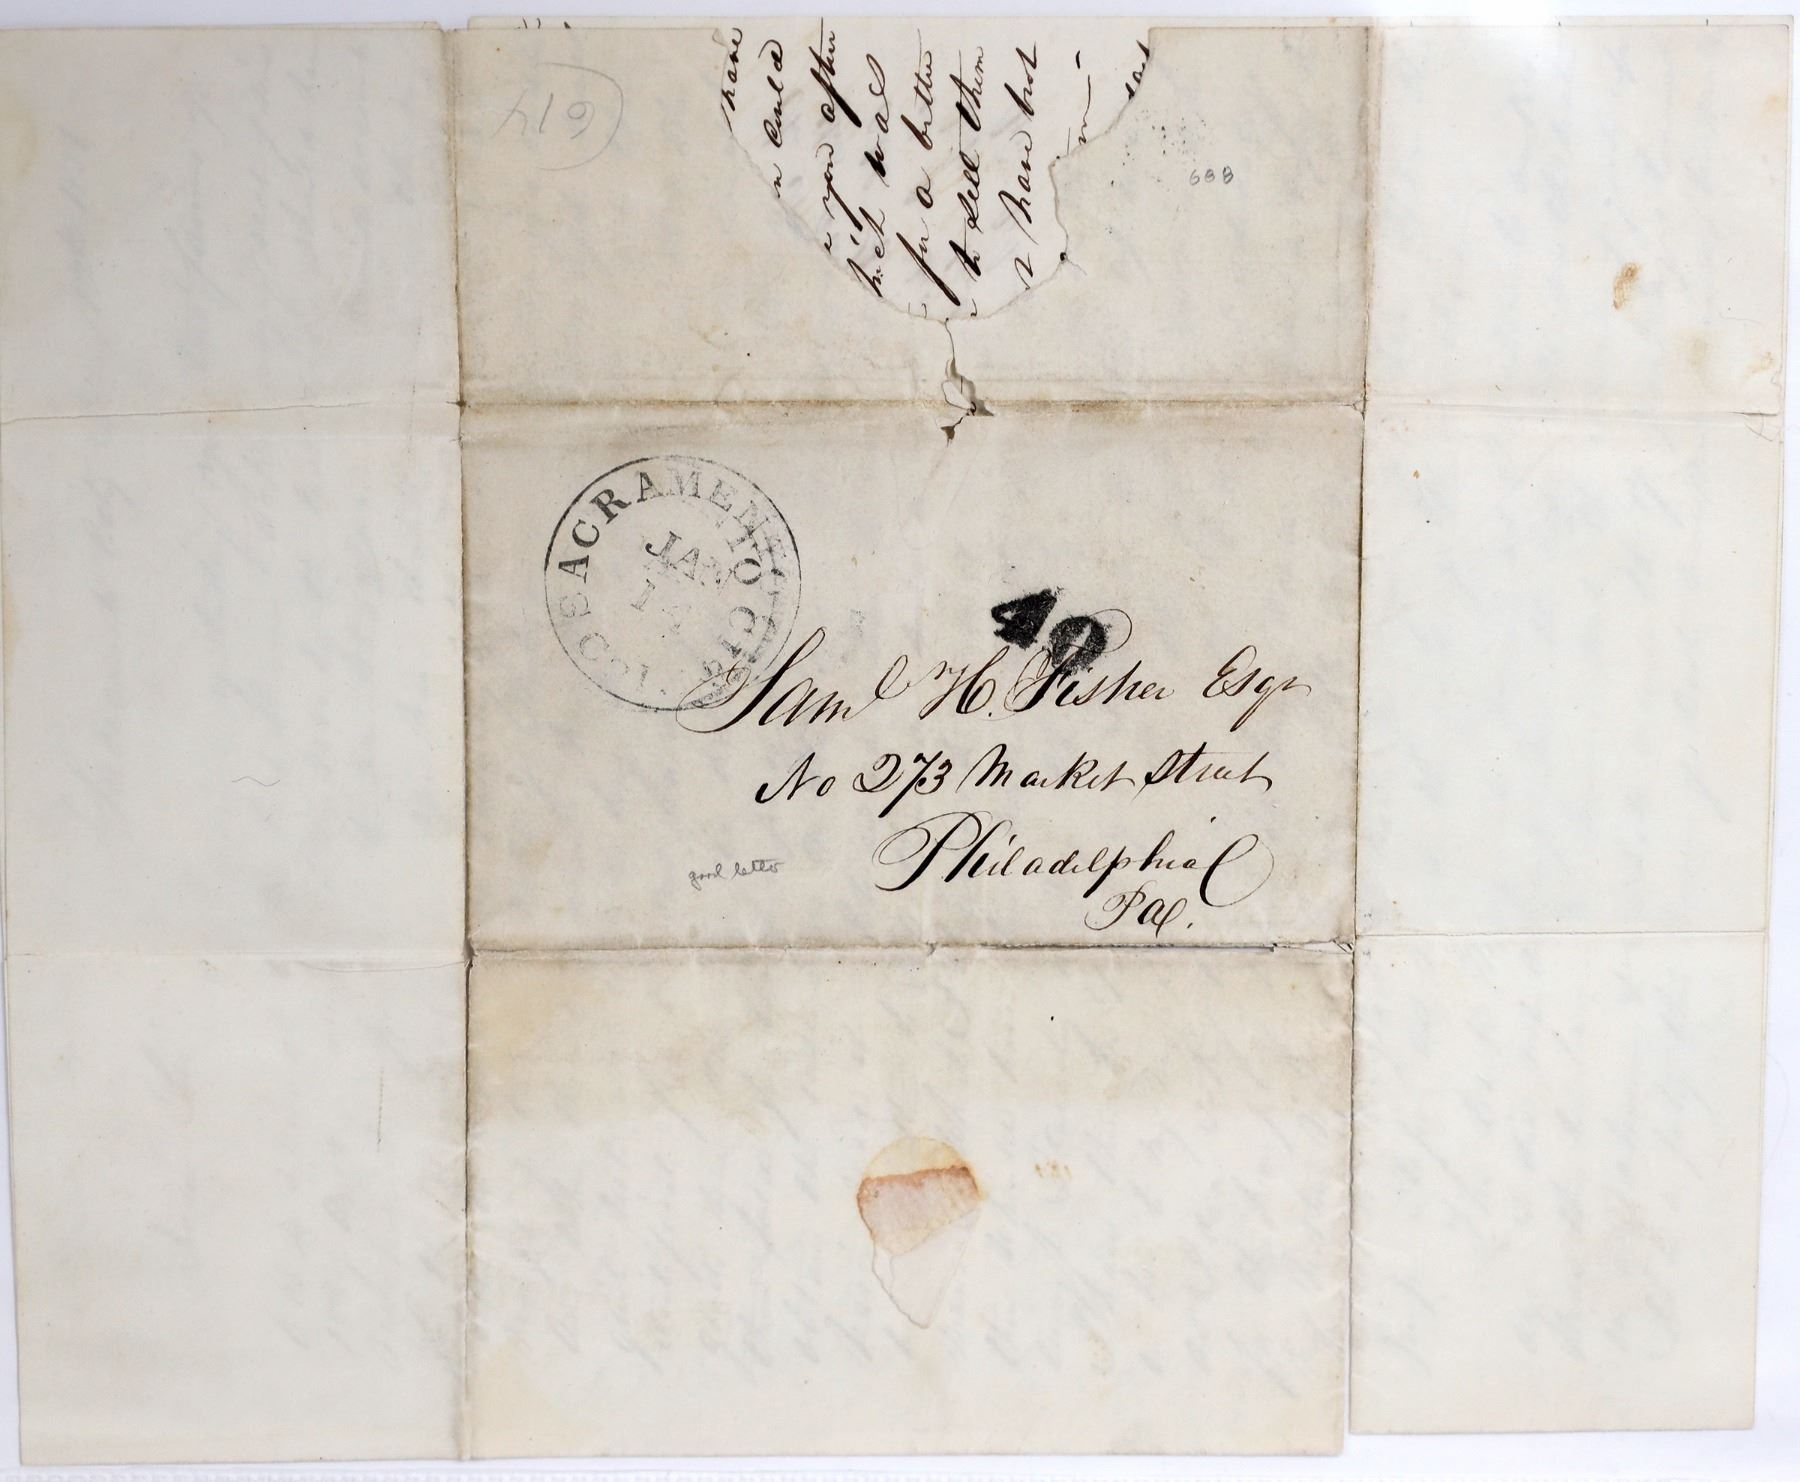 have
could
you after
was
for a better
to sell them
have but
(614
688
SACRAMENTO CITY
JAN
40
Saml H. Fisher Esqr
No 273 Market Street
Philadelphia
Pa.
good letter